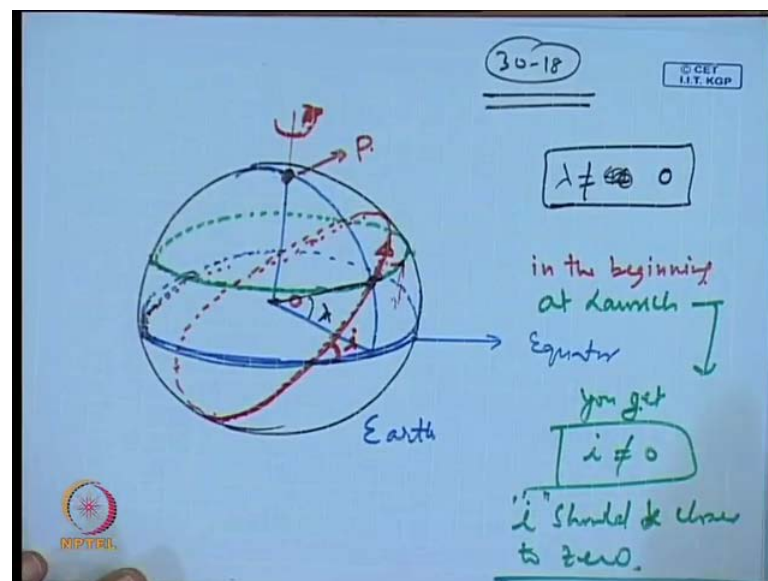 30-18
© CET
I.I.T. KGP
P.
λ ≠ 0
in the beginning
at Launch
O
λ
i
Equator
you get
i ≠ 0
Earth
"i" should be closer
to zero.
NPTEL